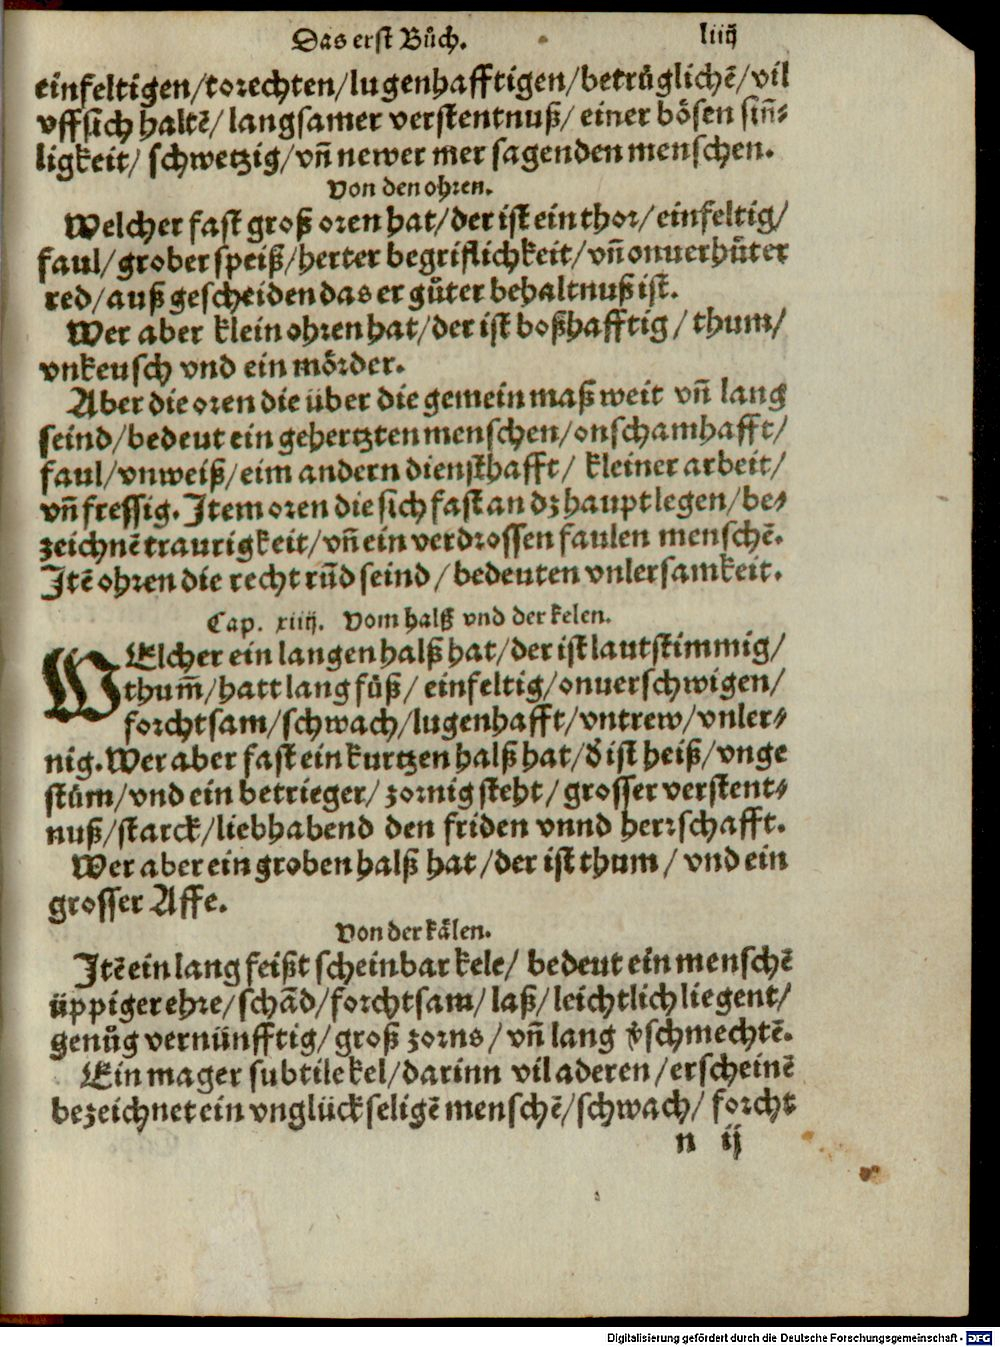 Das erst Bůch. liiij
einfeltigen/torechten/lugenhafftigen/betrůglichē/vil
vffsich haltē/langsamer verstentnuß/einer bösen siñ⸗
ligkeit/ schwetzig/vñ newer mer sagenden menschen.
Von den ohren.
Welcher fast groß oren hat/der ist ein thor/einfeltig/
faul/grober speiß/herter begriflichkeit/vñ onuerhůter
red/auß gescheiden das er gůter behaltnuß ist.
Wer aber klein ohren hat/der ist boßhafftig/thum/
vnkeusch vnd ein mörder.
Aber die oren die über die gemein maß weit vñ lang
seind/bedeut ein gehertzten menschen/onschamhafft/
faul/vnweiß/eim andern diensthafft/ kleiner arbeit/
vñ fressig. Item oren die sich fast an dz haupt legen/be⸗
zeichnē traurigkeit/vñ ein verdrossen faulen menschē.
Itē ohren die recht rūd seind/bedeuten vnlersamkeit.
Cap. xiiij. Vom halß vnd der kelen.
WElcher ein langen halß hat/der ist lautstimmig/
thum̄/hatt lang füß/ einfeltig/onuerschwigen/
forchtsam/schwach/lugenhafft/vntrew/vnler⸗
nig. Wer aber fast ein kurtzen halß hat/d̕ ist heiß/vnge
stům/vnd ein betrieger/ zornig steht/grosser verstent⸗
nuß/starck/liebhabend den friden vnnd herrschafft.
Wer aber ein groben halß hat/der ist thum/ vnd ein
grosser Affe.
Von der kälen.
Itē ein lang feißt scheinbar kele/ bedeut ein menschē
üppiger ehre/schād/forchtsam/laß/leichtlich liegent/
genůg vernünfftig/groß zorns/vñ lang v̕schmechtē.
Ein mager subtile kel/darinn vil aderen/erscheinē
bezeichnet ein vnglückseligē menschē/schwach/ forcht
n ij
Digitalisierung gefördert durch die Deutsche Forschungsgemeinschaft - DFG